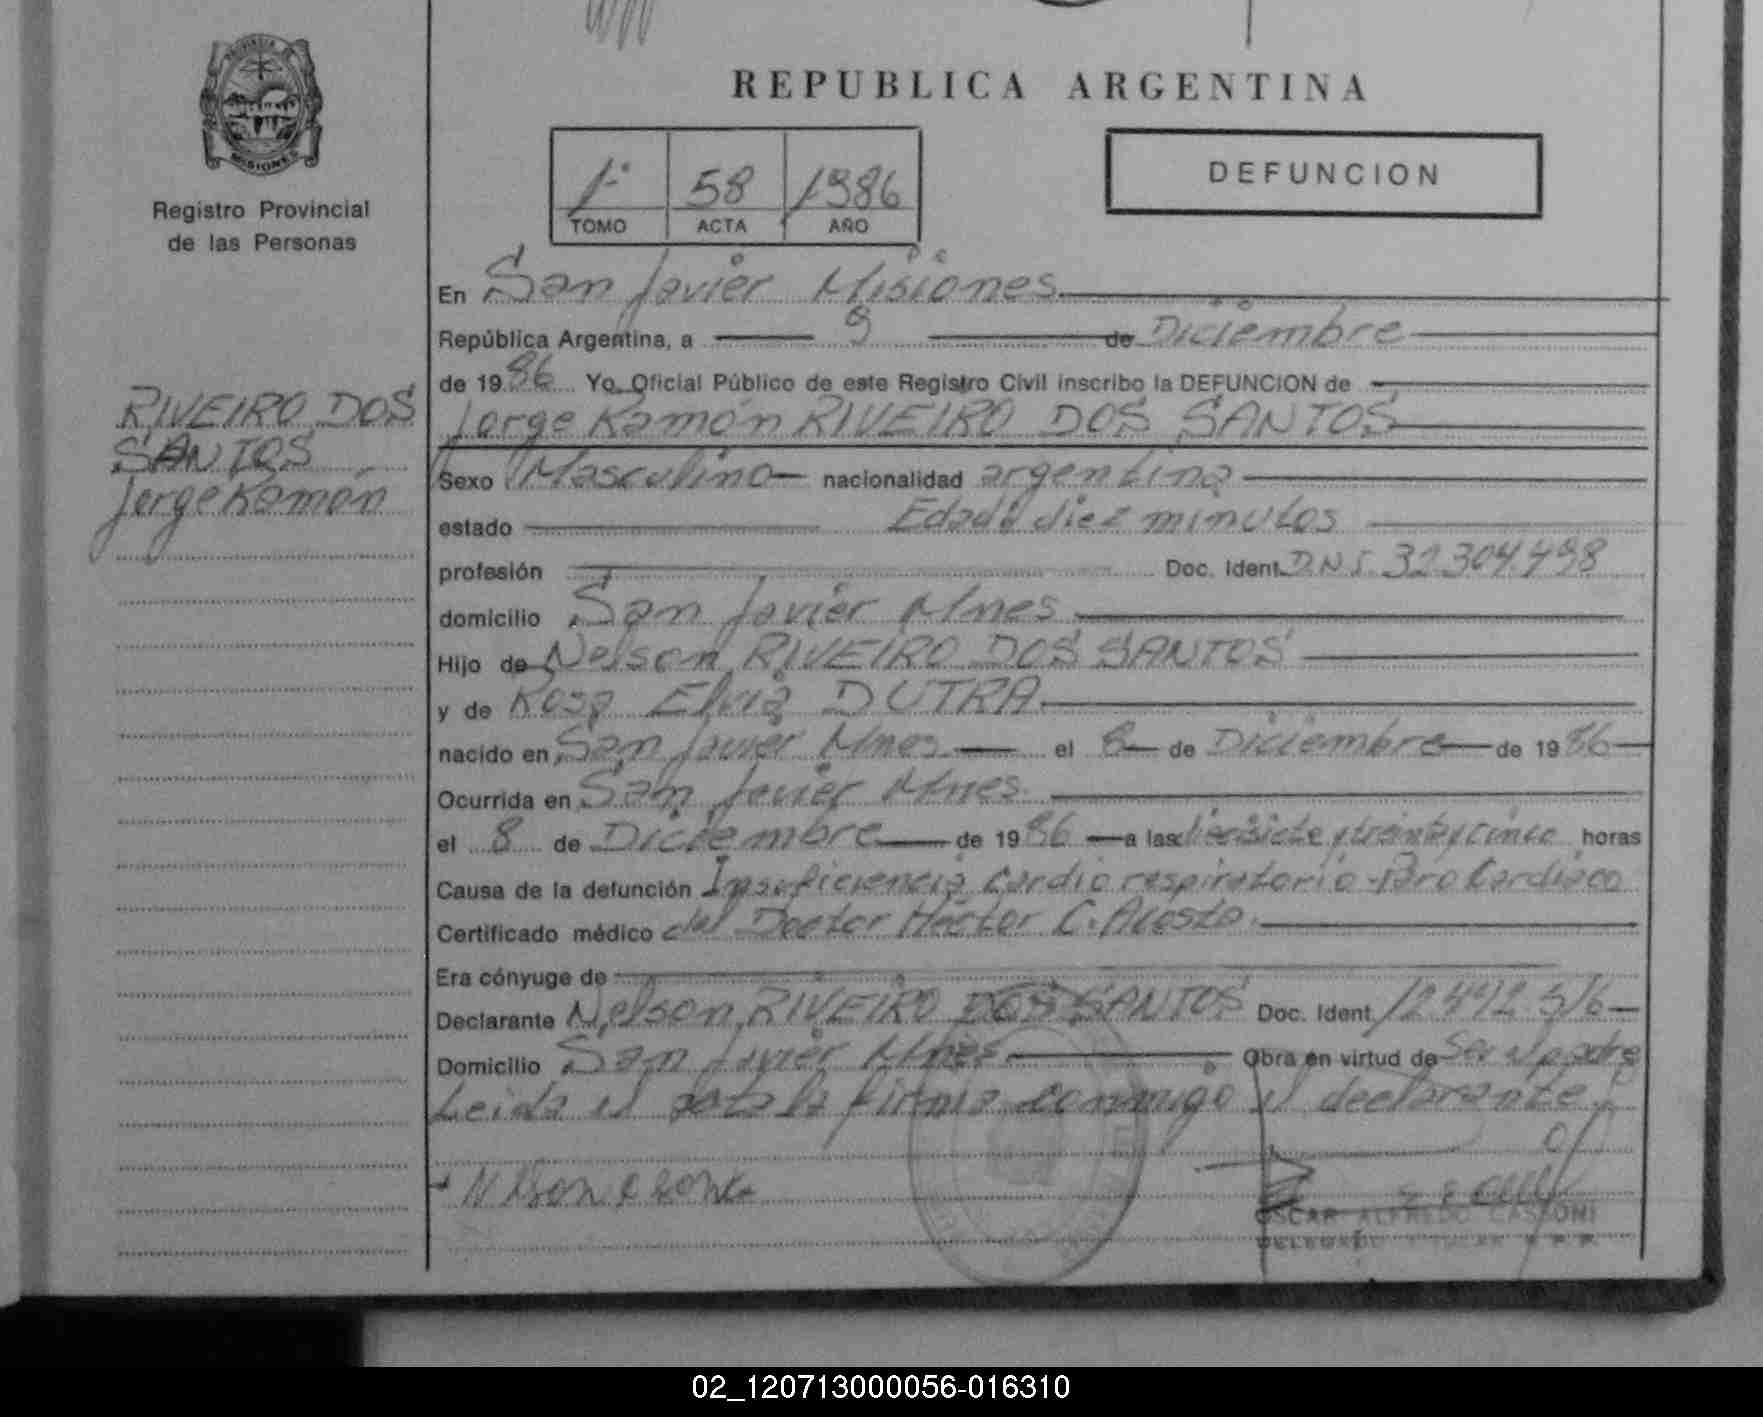 PROVINCIA DE
MISIONES
Registro Provincial
de las Personas
REPUBLICA ARGENTINA
1º 58 1986
TOMO ACTA AÑO
DEFUNCION
En San Javier Misiones
República Argentina, a 9 de Diciembre
de 1986 Yo Oficial Público de este Registro Civil inscribo la DEFUNCION de
Jorge Ramón RIVEIRO DOS SANTOS
RIVEIRO DOS
SANTOS
Jorge Ramón
Sexo Masculino nacionalidad argentina
estado Edad: diez minutos
profesión Doc. Ident. D.N.I. 32.304.498
domicilio San Javier Mnes
Hijo de Nelson RIVEIRO DOS SANTOS
y de Rosa Elvia DUTRA
nacido en San Javier Mnes el 8 de Diciembre de 1986
Ocurrida en San Javier Mnes.
el 8 de Diciembre de 1986 a las diecisiete y treinta y cinco horas
Causa de la defunción Insuficiencia Cardio respiratorio - Paro Cardiaco
Certificado médico del Doctor Héctor C. Acosta.
Era cónyuge de
Declarante Nelson RIVEIRO DOS SANTOS Doc. Ident. 12.492.516
Domicilio San Javier Mnes Obra en virtud de Ser el padre
Leida el acta la firma conmigo el declarante
OSCAR ALFREDO CASSONI
DELEGADO TITULAR R.P.P.
02_120713000056-016310